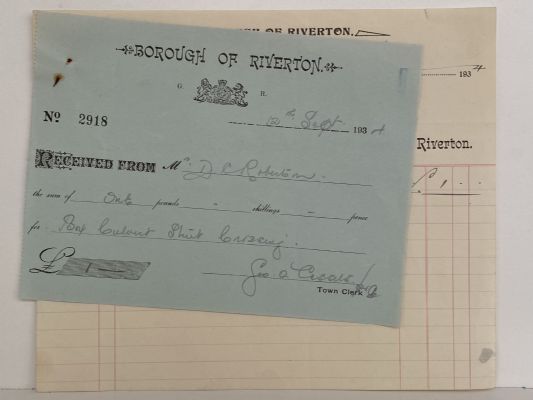 OF RIVERTON.
1934
Riverton.
1
BOROUGH OF RIVERTON.
G. R.
No 2918
12th Sept 1934
RECEIVED FROM Mr D C Robertson.
the sum of One pounds - shillings - pence
for Box Culvert Street Crossing.
£ 1
Geo
Town Clerk